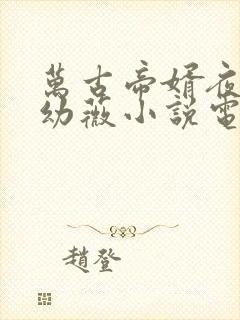 萬古帝婿夜
幼薇小說電
趙登